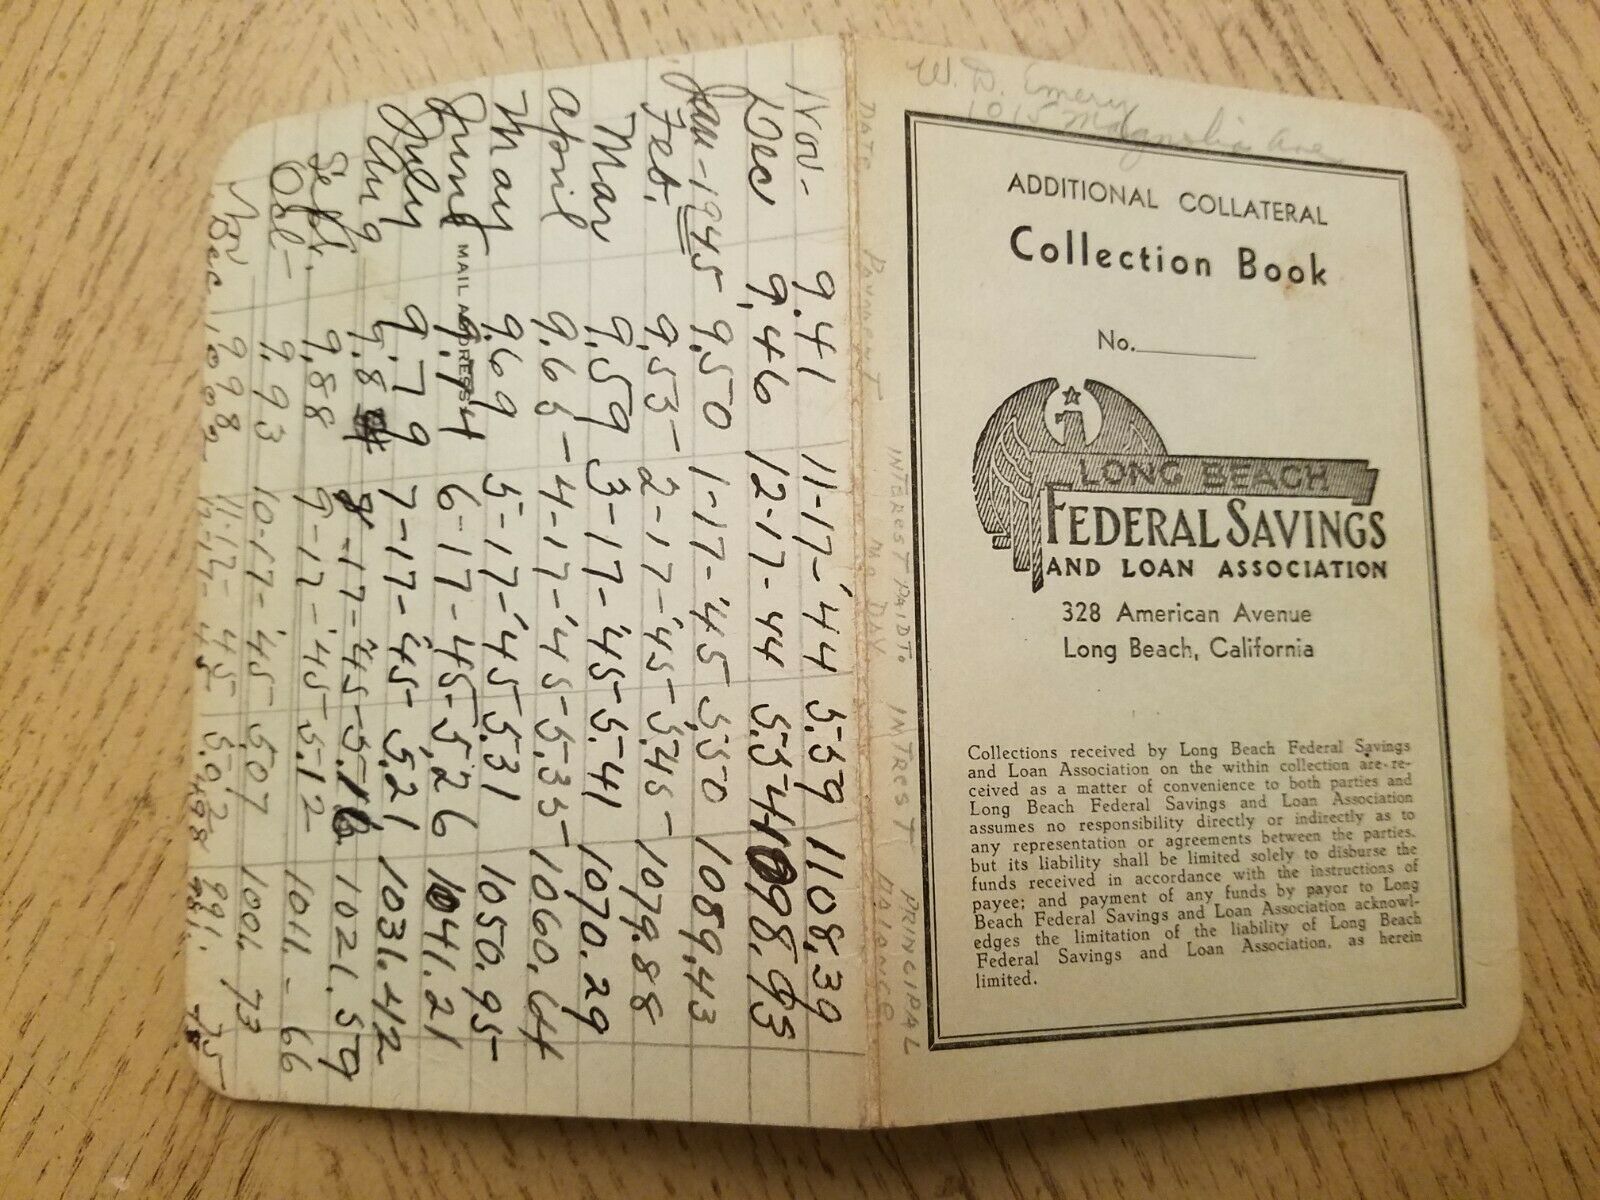 W. D. Emery
1015 Magnolia Ave,
ADDITIONAL COLLATERAL
Collection Book
No.
LONG BEACH
FEDERAL SAVINGS
AND LOAN ASSOCIATION
328 American Avenue
Long Beach, California
Collections received by Long Beach Federal Savings
and Loan Association on the within collection are re-
ceived as a matter of convenience to both parties and
Long Beach Federal Savings and Loan Association
assumes no responsibility directly or indirectly as to
any representation or agreements between the parties,
but its liability shall be limited solely to disburse the
funds received in accordance with the instructions of
payee; and payment of any funds by payor to Long
Beach Federal Savings and Loan Association acknowl-
edges the limitation of the liability of Long Beach
Federal Savings and Loan Association, as herein
limited.
DATE PAYMENT INTEREST PAID TO MO DAY INTREST PRINCIPAL BALANCE
Nov- 9.41 11-17-'44 5.59 1108.39
Dec 9.46 12-17-44 5.54 1098.93
Jan-1945 9.50 1-17-'45 5.50 1089.43
Feb. 9.55- 2-17-'45- 5.45- 1079.88
Mar 9.59 3-17-'45- 5.41 1070.29
April 9.65- 4-17-'45- 5.35- 1060.64
May 9.69 5-17-'45 5.31 1050.95-
June 9.74 6-17-45- 5.26 1041.21
July 9.79 7-17-45- 5.21 1031.42
Aug 9.84 8-17-45- 5.16 1021.59
Sept. 9.88 9-17-'45- 5.12 1011.-66
Oct- 9.93 10-17-'45- 5.07 1001.73
Nov 9.98 11-17- 5.02 991.75
Dec 10.02 45 4.98 981.
MAIL ADDRESS